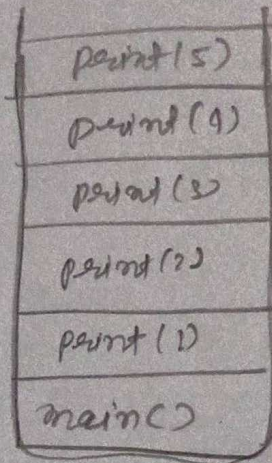 print(5)
print(4)
print(3)
print(2)
print(1)
main()